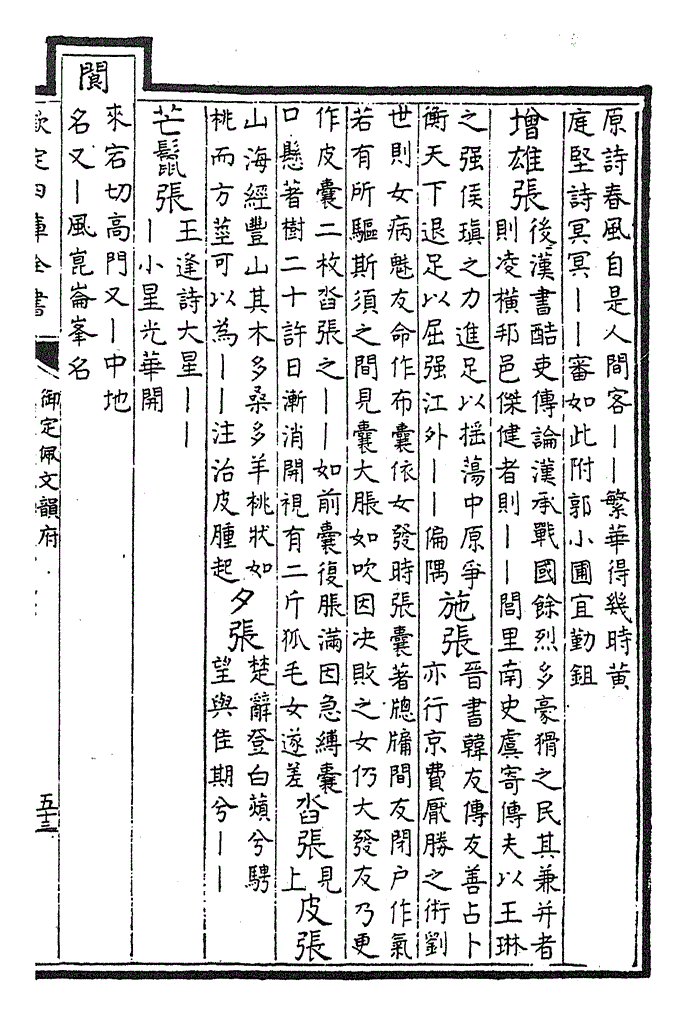 原詩春風自是人間客｜｜繁華得幾時黄
庭堅詩冥冥｜｜審如此附郭小圃宜勤鉏
增雄張
後漢書酷吏傳論漢承戰國餘烈多豪猾之民其兼并者
則凌横邦邑傑健者則｜｜閭里南史虞寄傳夫以王琳
之强侯瑱之力進足以揺蕩中原爭
衡天下退足以屈强江外｜｜偏隅
施張
晉書韓友傳友善占卜
亦行京費厭勝之術劉
世則女病魅友命作布囊依女發時張囊著牕牗間友閉户作氣
若有所驅斯須之間見囊大脹如吹因决敗之女仍大發友乃更
作皮囊二枚沓張之｜｜如前囊復脹滿因急縛囊
口懸著樹二十許日漸消開視有二斤狐毛女遂差
沓張
見
上
皮張
山海經豐山其木多桑多羊桃狀如
桃而方莖可以為｜｜注治皮腫起
夕張
楚辭登白蘋兮騁
望與佳期兮｜｜
芒鬛張
王逢詩大星｜｜
｜小星光華開
閬
來宕切高門又｜中地
名又｜風崑崙峯名
欽定四庫全書
御定佩文韻府
五十三